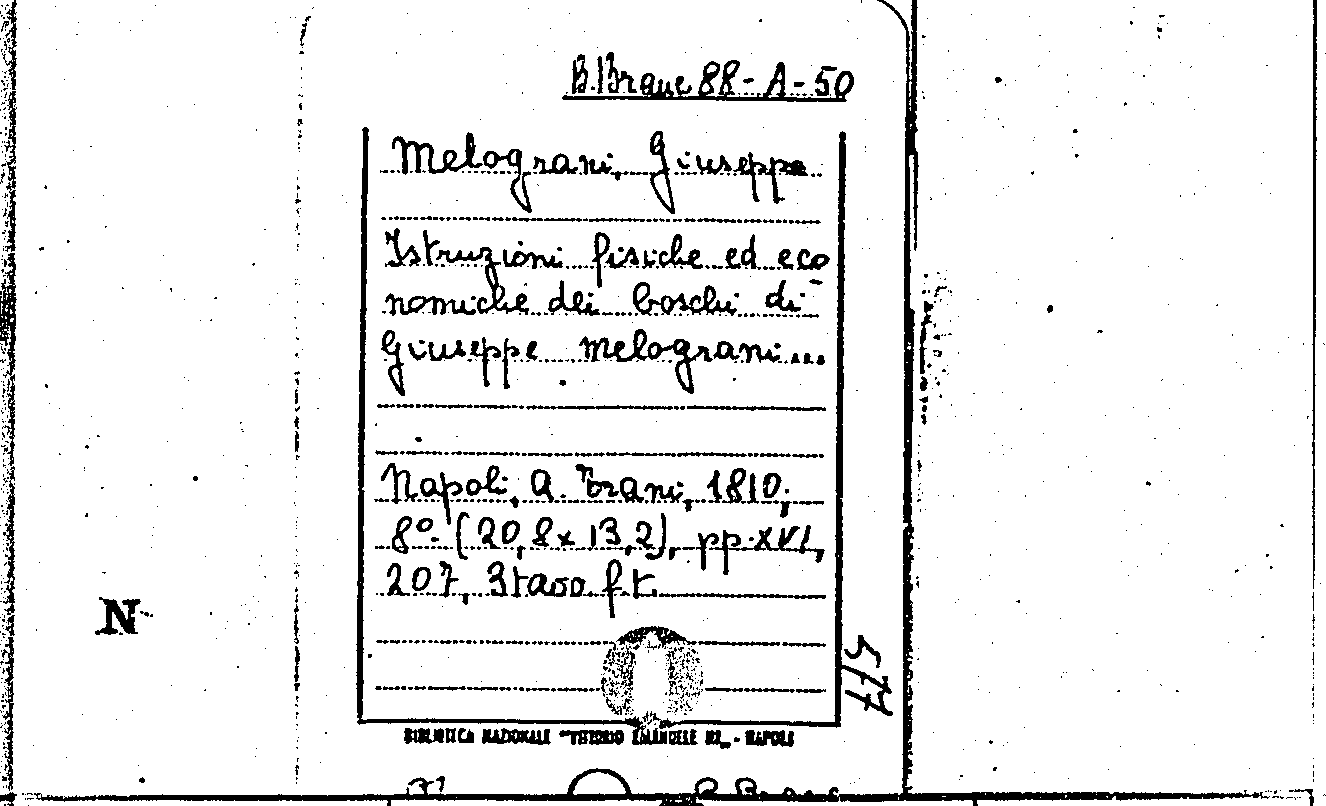 B. Branc. 88-A-50
Melograni, Giuseppe
Istruzioni fisiche ed eco
nomiche dei boschi di
Giuseppe Melograni...
Napoli, A. Trani, 1810;
8º (20,8x13,2), pp. XVI,
207, 3 tavv f.t.
577
N
BIBLIOTECA NAZIONALE "VITTORIO EMANUELE III" - NAPOLI